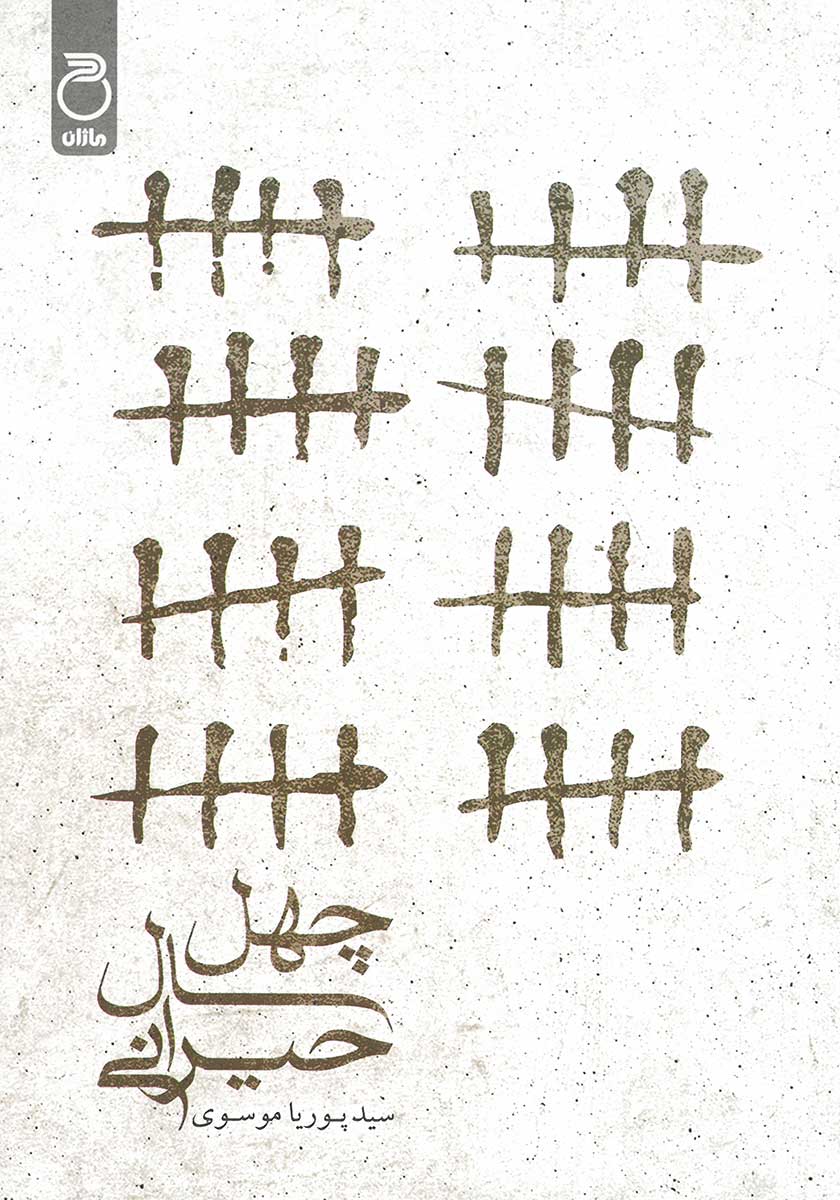 ماژان
چهل
سال
حیرانی
سید پوریا موسوی